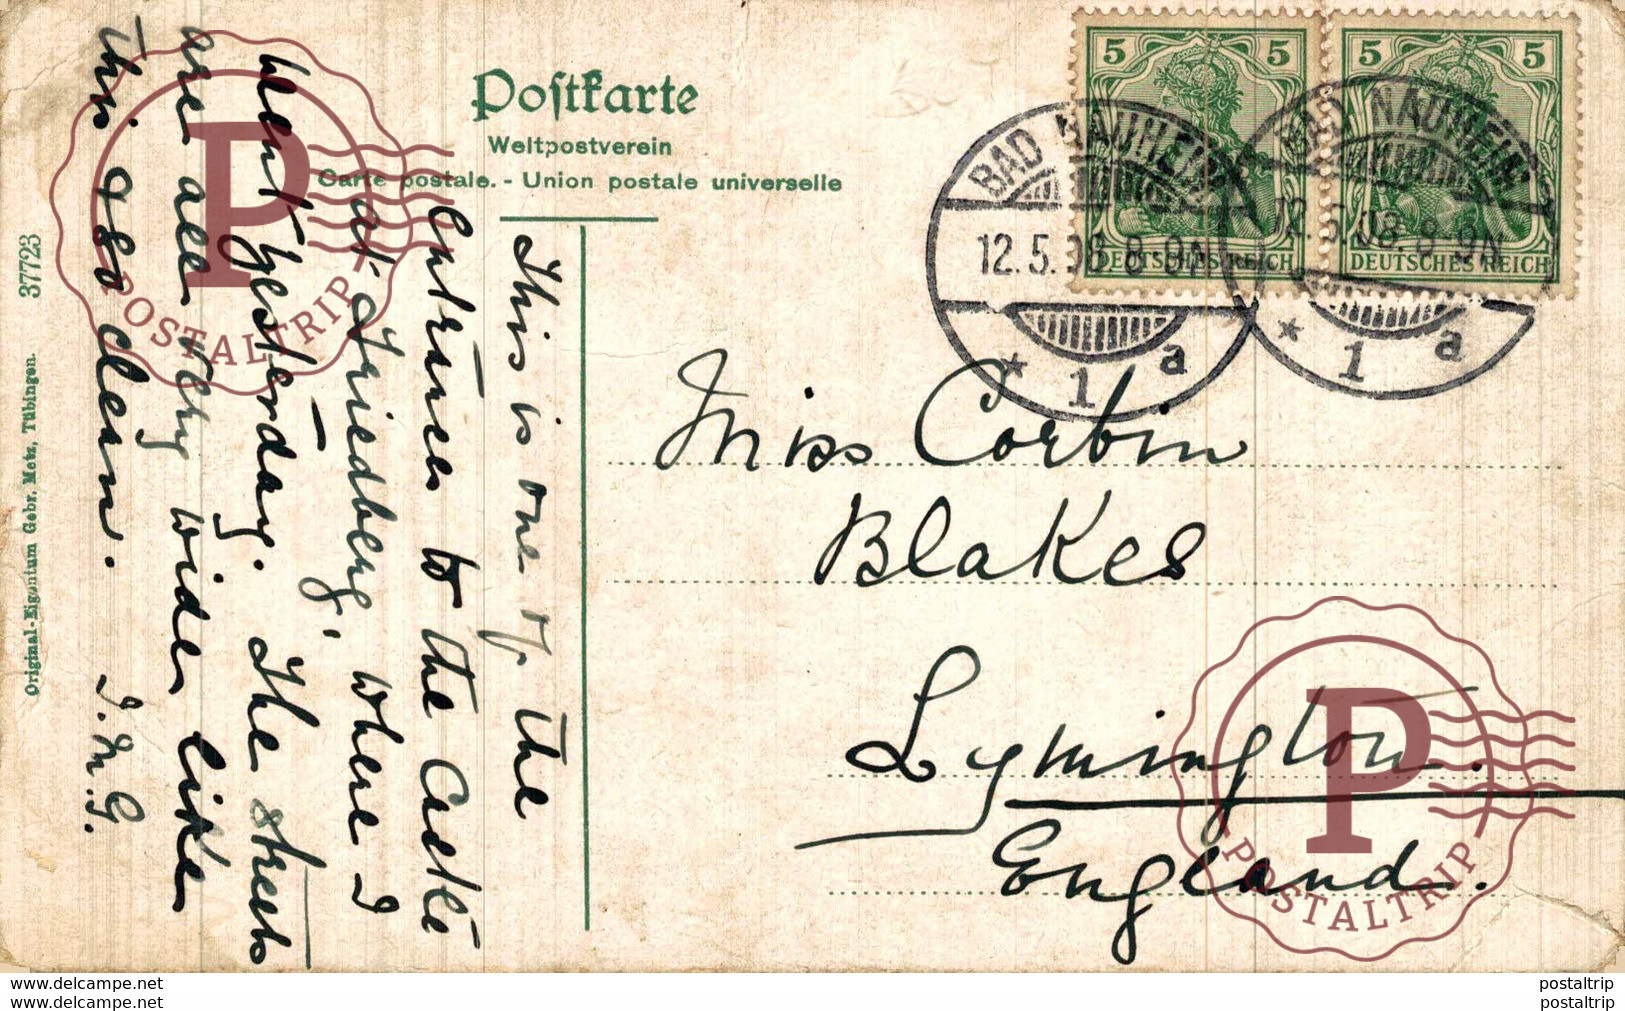 Postkarte
Weltpostverein
Carte postale. - Union postale universelle
This is one of the
entrances to the Castle
at Friedberg, where I
went yesterday. The streets
are all very wide, like
this also clean. I.M.G.
Miss Corbin
Blakes
Lymington.
England.
5 5
DEUTSCHES REICH
5 5
DEUTSCHES REICH
BAD NAUHEIM
12.5.08. 8-9N
* 1 a
BAD NAUHEIM
12.5.08. 8-9N
* 1 a
Original-Eigentum Gebr. Metz, Tübingen. 37723
P
POSTALTRIP
P
POSTALTRIP
www.delcampe.net
www.delcampe.net
postaltrip
postaltrip